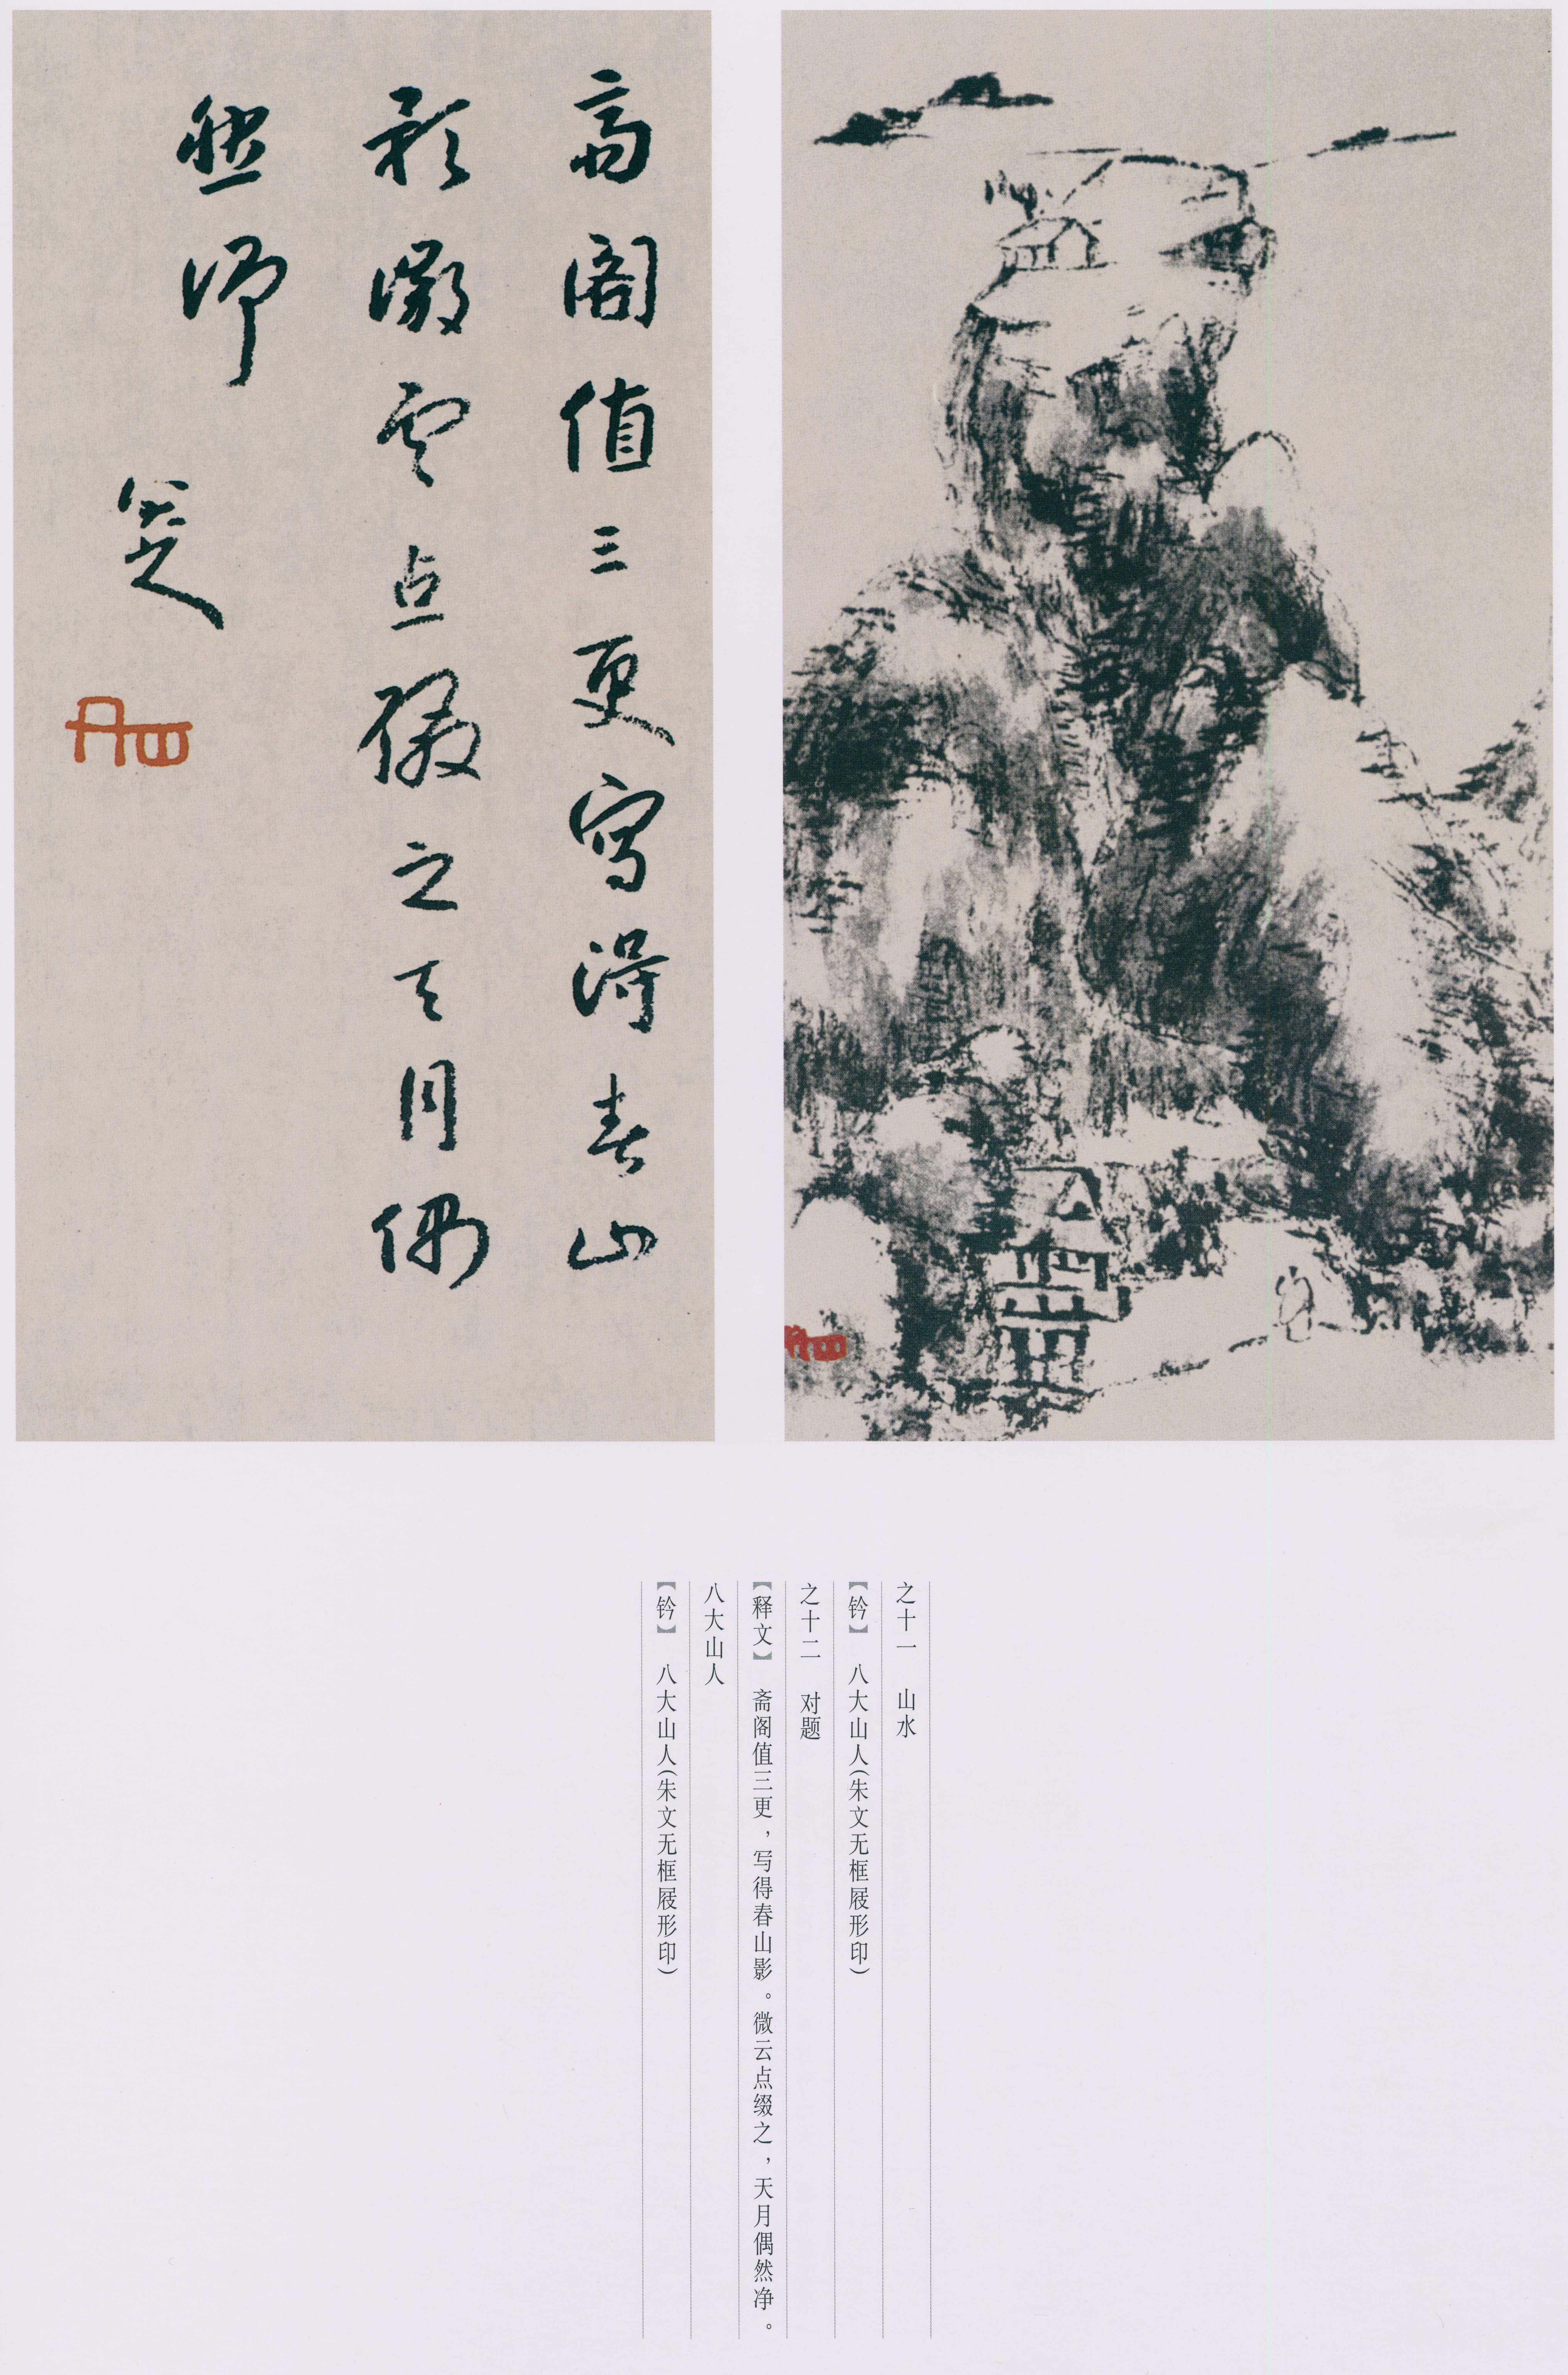 斋阁值三更写得春山
影微云点缀之天月偶
然净
八大山人
之十一　山水
【钤】　八大山人(朱文无框屐形印)
之十二　对题
【释文】　斋阁值三更，写得春山影。微云点缀之，天月偶然净。
八大山人
【钤】　八大山人(朱文无框屐形印)